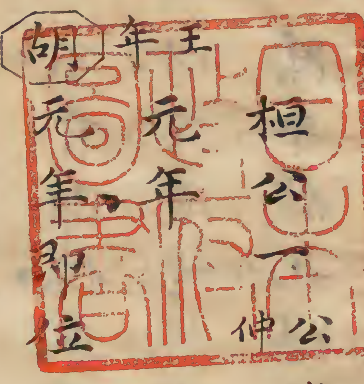 桓公一
公
仲
王
年
元年
胡
元年即位